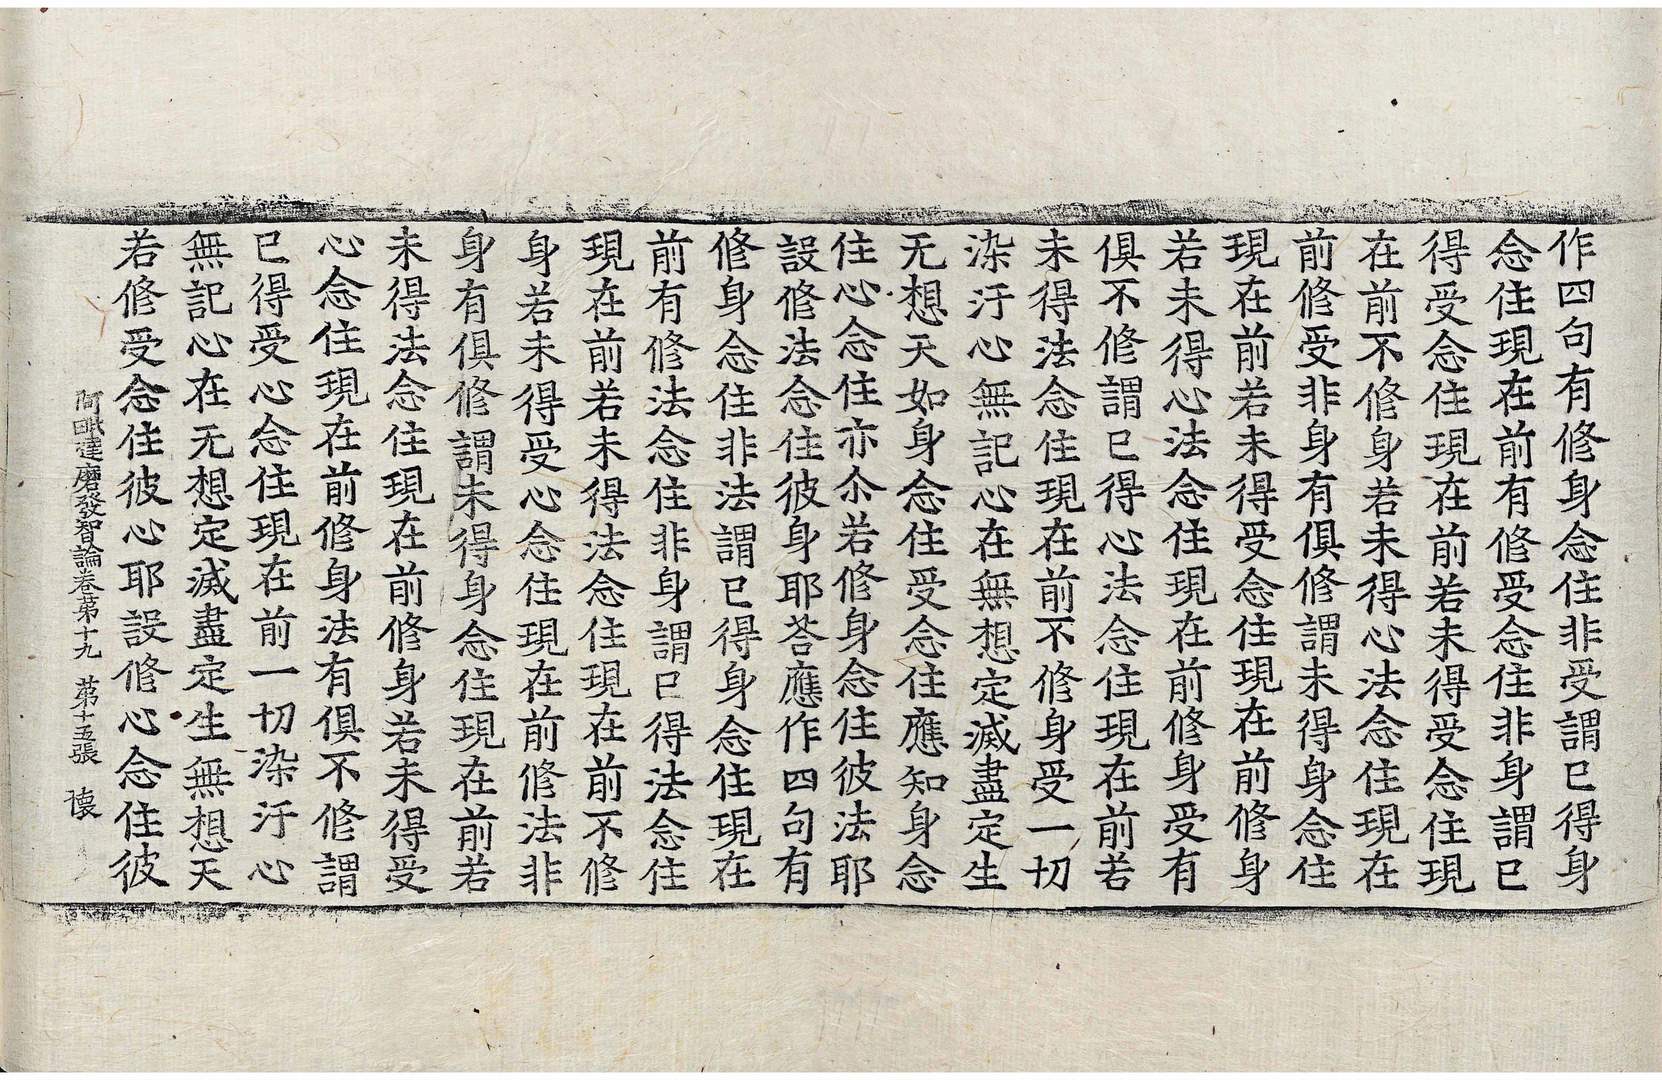 作四句有修身念住非受謂已得身
念住現在前有修受念住非身謂已
得受念住現在前若未得受念住現
在前不修身若未得心法念住現在
前修受非身有俱修謂未得身念住
現在前若未得受念住現在前修身
若未得心法念住現在前修身受有
俱不修謂已得心法念住現在前若
未得法念住現在前不修身受一切
染汙心無記心在無想定滅盡定生
无想天如身念住受念住應知身念
住心念住亦尒若修身念住彼法耶
設修法念住彼身耶荅應作四句有
修身念住非法謂已得身念住現在
前有修法念住非身謂已得法念住
現在前若未得法念住現在前不修
身若未得受心念住現在前修法非
身有俱修謂未得身念住現在前若
未得法念住現在前修身若未得受
心念住現在前修身法有俱不修謂
已得受心念住現在前一切染汙心
無記心在无想定滅盡定生無想天
若修受念住彼心耶設修心念住彼
阿毗達磨發智論卷苐十九 苐十五張 懐